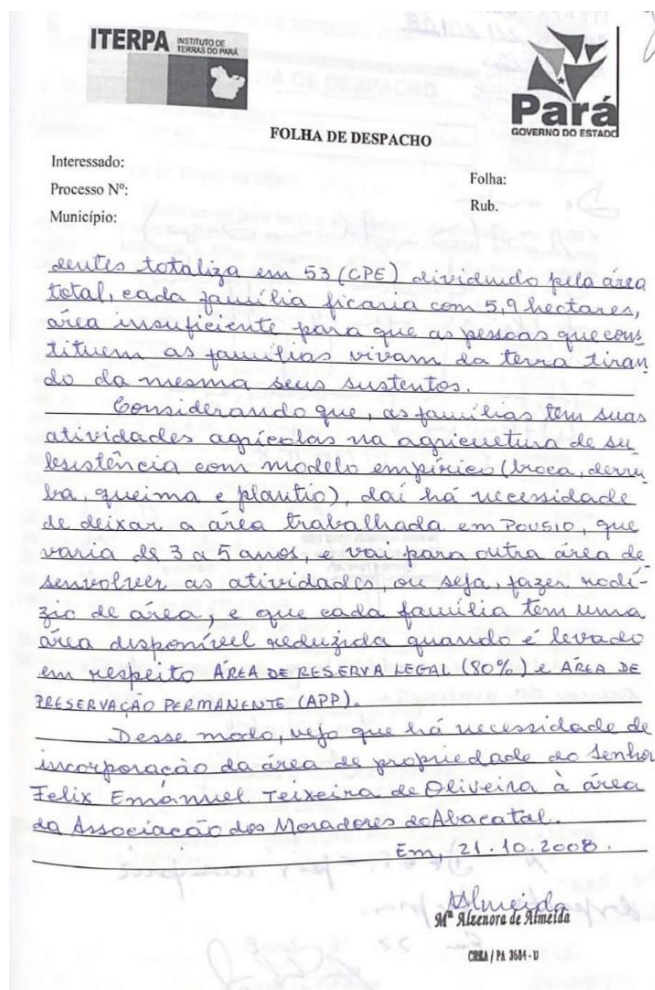 ITERPA INSTITUTO DE
TERRAS DO PARÁ
Pará
GOVERNO DO ESTADO
FOLHA DE DESPACHO
Interessado:
Folha:
Processo Nº:
Rub.
Município:
dentes totaliza em 53 (CPE) dividindo pela área
total, cada família ficaria com 5,9 hectares,
área insuficiente para que as pessoas que cons
tituem as famílias vivam da terra tiran
do da mesma seus sustentos.
Considerando que, as famílias tem suas
atividades agrícolas na agricultura de su
bsistência com modelo empírico (broca, derru
ba, queima e plantio), daí há necessidade
de deixar a área trabalhada em POUSIO, que
varia de 3 a 5 anos e vai para outra área de
senvolver as atividades, ou seja, fazer rodí-
zio de área, e que cada família tem uma
área disponível reduzida quando é levado
em respeito ÁREA DE RESERVA LEGAL (80%) e ÁREA DE
PRESERVAÇÃO PERMANENTE (APP).
Desse modo, vejo que há necessidade de
incorporação da área de propriedade do Senhor
Felix Emanuel Teixeira de Oliveira à área
da Associação dos Moradores do Abacatal.
Em, 21.10.2008.
Almeida
Mª Alzenora de Almeida
CREA / PA 3684 - D